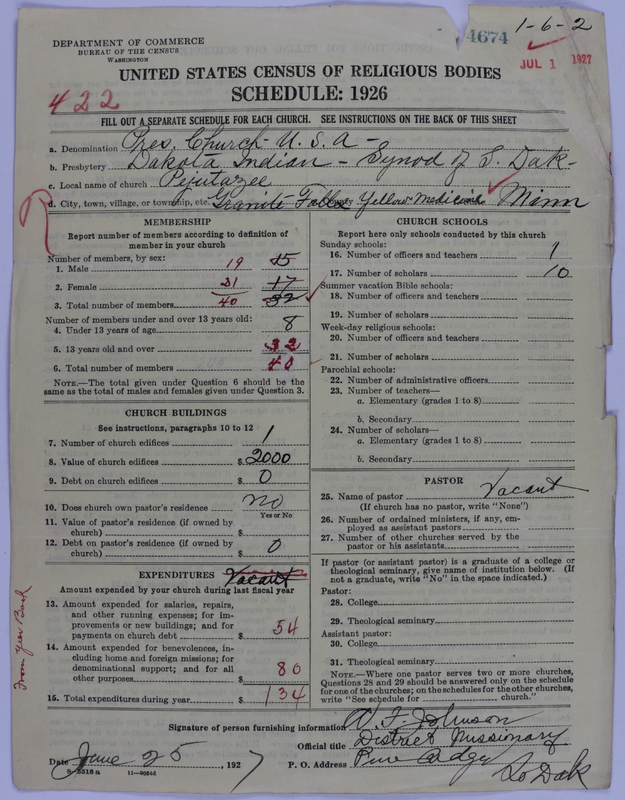 4674
1-6-2
JUL 1 1927
DEPARTMENT OF COMMERCE
BUREAU OF THE CENSUS
WASHINGTON
UNITED STATES CENSUS OF RELIGIOUS BODIES
SCHEDULE: 1926
422
FILL OUT A SEPARATE SCHEDULE FOR EACH CHURCH. SEE INSTRUCTIONS ON THE BACK OF THIS SHEET
a. Denomination Pres. Church - U.S.A -
b. Presbytery Dakota Indian - Synod of S. Dak -
c. Local name of church Pejutazee
d. City, town, village, or township, etc. Granite Falls Yellow Medicine Minn
MEMBERSHIP
Report number of members according to definition of
member in your church
Number of members, by sex:
1. Male 19 15
2. Female 21 17
3. Total number of members 40 32
Number of members under and over 13 years old:
4. Under 13 years of age 8
5. 13 years old and over 32
6. Total number of members 40
NOTE.—The total given under Question 6 should be
same as the total of males and females given under Question 3.
CHURCH BUILDINGS
See instructions, paragraphs 10 to 12
7. Number of church edifices 1
8. Value of church edifices $ 2000
9. Debt on church edifices $ 0
10. Does church own pastor's residence no
Yes or No
11. Value of pastor's residence (if owned by
church) $
12. Debt on pastor's residence (if owned by
church) $ 0
EXPENDITURES Vacant
Amount expended by your church during last fiscal year
13. Amount expended for salaries, repairs,
and other running expenses; for im-
provements or new buildings; and for
payments on church debt $ 54
14. Amount expended for benevolences, in-
cluding home and foreign missions; for
denominational support; and for all
other purposes $ 80
15. Total expenditures during year $ 134
From Year Book
CHURCH SCHOOLS
Report here only schools conducted by this church
Sunday schools:
16. Number of officers and teachers 1
17. Number of scholars 10
Summer vacation Bible schools:
18. Number of officers and teachers
19. Number of scholars
Week-day religious schools:
20. Number of officers and teachers
21. Number of scholars
Parochial schools:
22. Number of administrative officers
23. Number of teachers—
a. Elementary (grades 1 to 8)
b. Secondary
24. Number of scholars—
a. Elementary (grades 1 to 8)
b. Secondary
PASTOR
25. Name of pastor Vacant
(If church has no pastor, write "None")
26. Number of ordained ministers, if any, em-
ployed as assistant pastors
27. Number of other churches served by the
pastor or his assistants
If pastor (or assistant pastor) is a graduate of a college or
theological seminary, give name of institution below. (If
not a graduate, write "No" in the space indicated.)
Pastor:
28. College
29. Theological seminary
Assistant pastor:
30. College
31. Theological seminary
NOTE.—Where one pastor serves two or more churches,
Questions 28 and 29 should be answered only on the schedule
for one of the churches; on the schedules for the other churches,
write "See schedule for church."
Signature of person furnishing information Johnson
Official title District Missionary
Date June 25, 1927 P. O. Address Pine Ridge
So Dak
8-5318 a